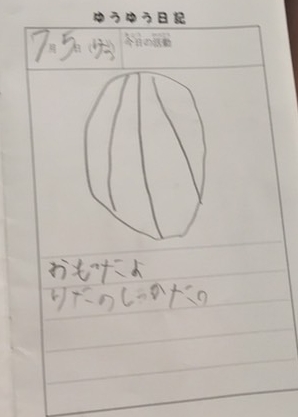 ゆうゆう日記
7月5日 今日の活動
おもだよ
りだのしっかだの